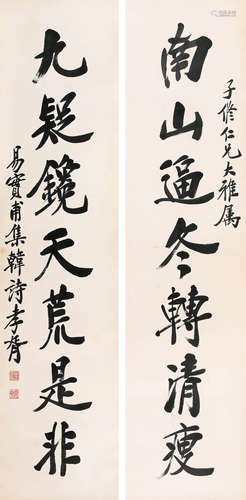 南山逼冬轉清瘦
子修仁兄大雅属
九疑鑱天荒是非
易實甫集韓詩孝胥